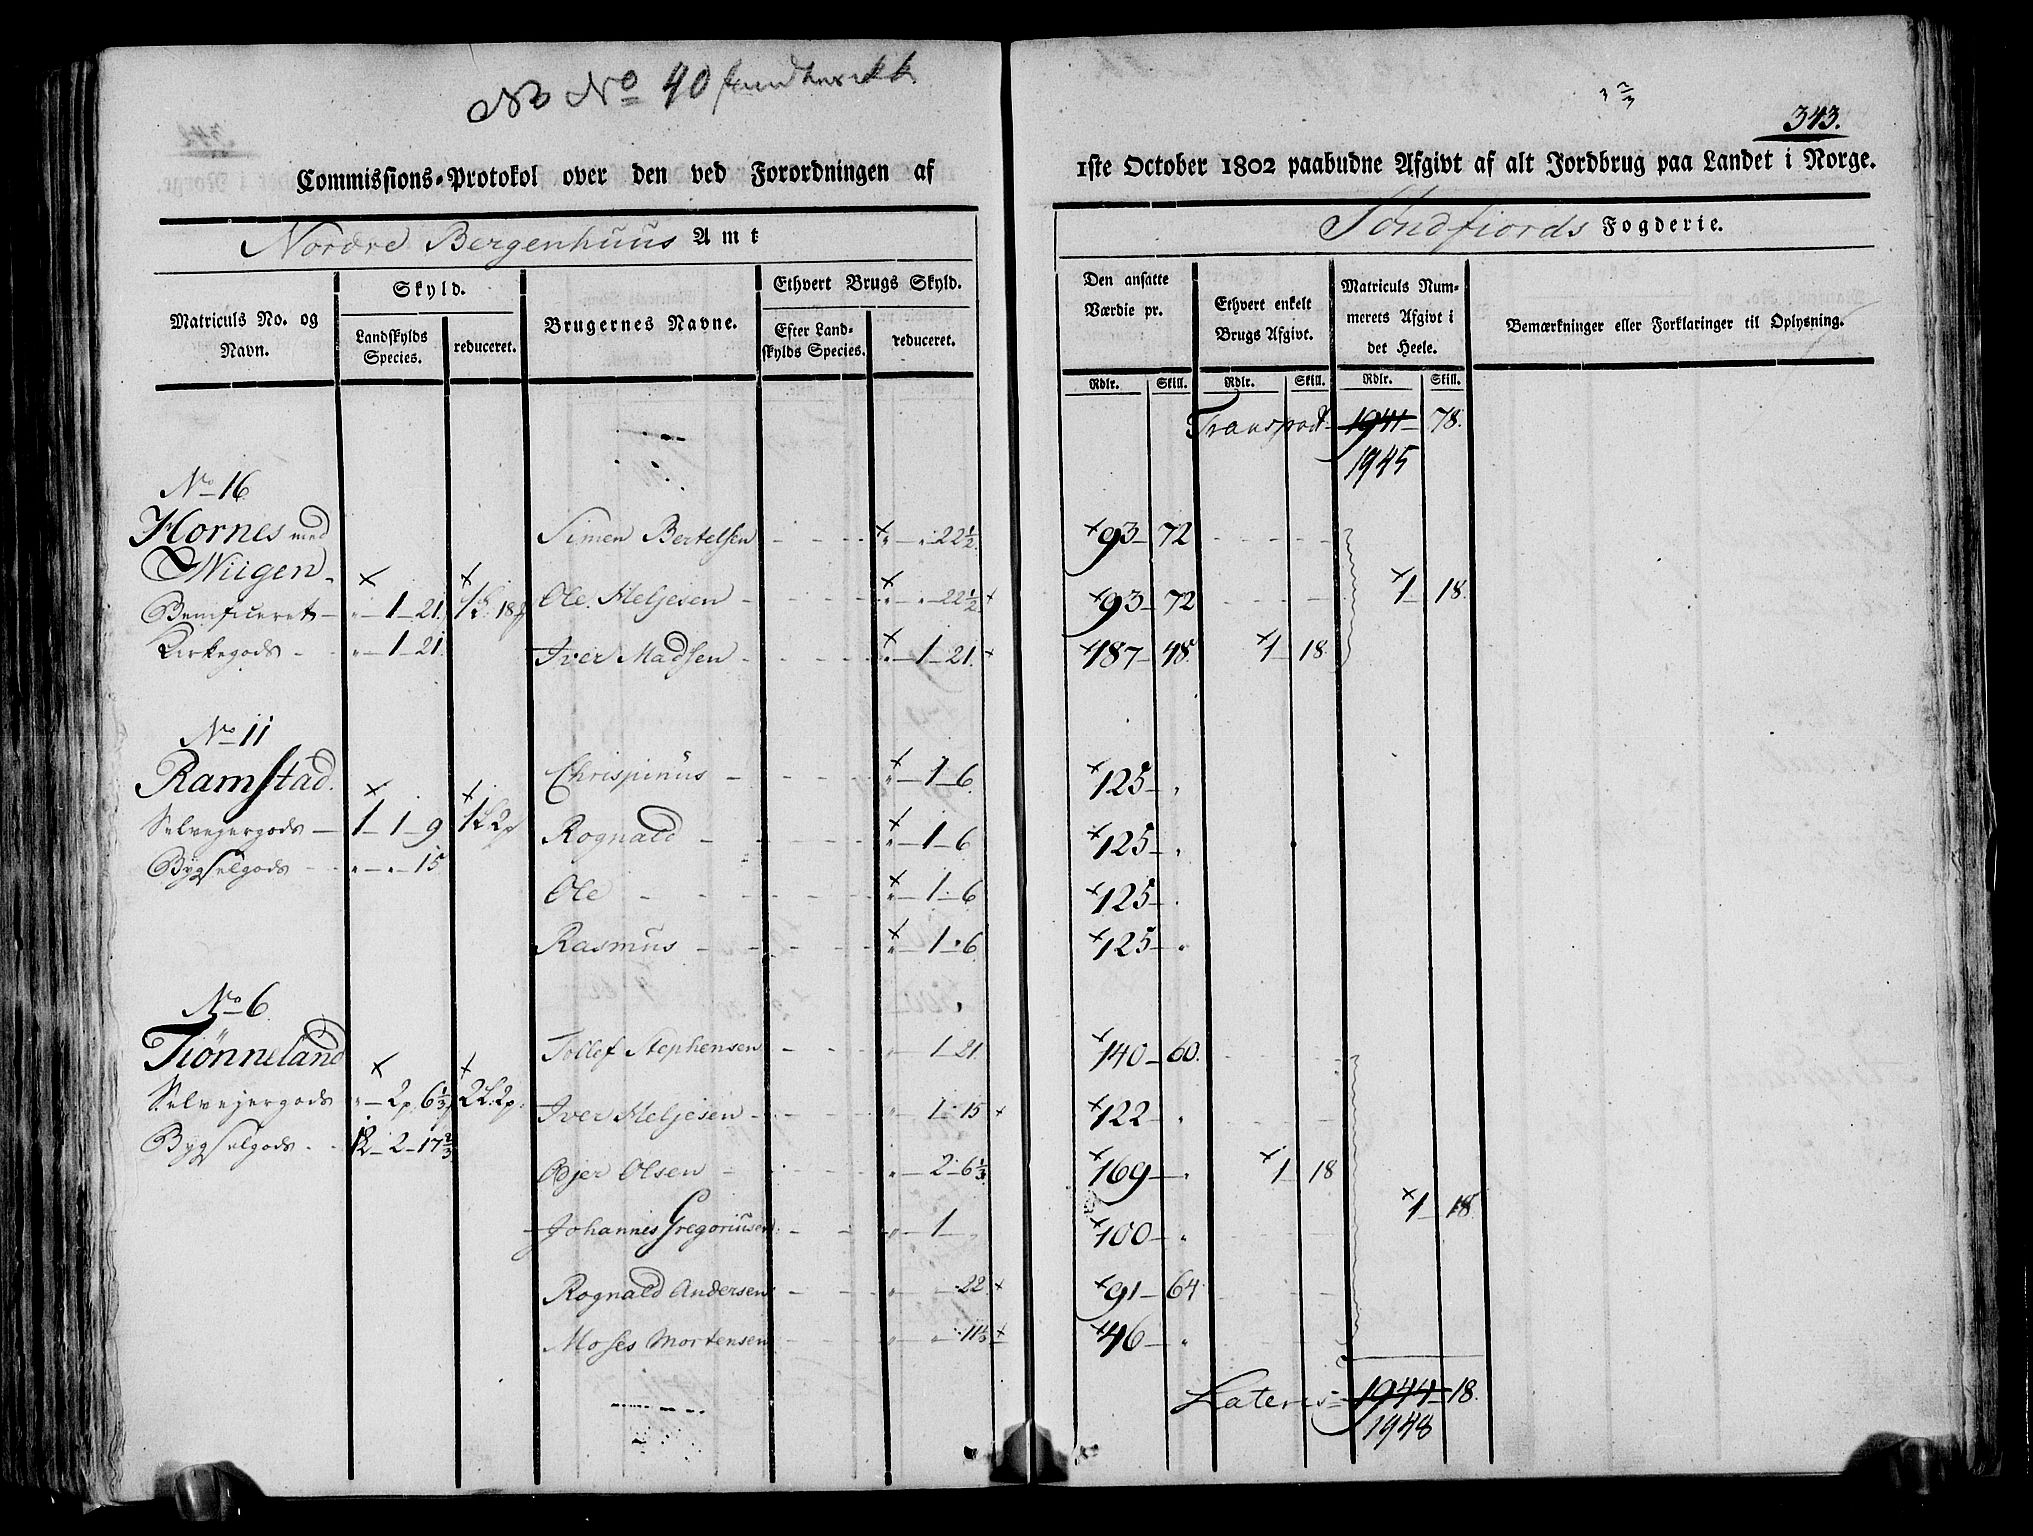 NB No 40
343.
Commissions-Protokol over den ved Forordningen af
1ste October 1802 paabudne Afgivt af alt Jordbrug paa Landet i Norge.
Nordre Bergenhuus Amt
Sondfiords Fogderie.
Matriculs No. og Navn.
Skyld.
Landskylds Species.
reduceret.
Brugernes Navne.
Ethvert Brugs Skyld.
Efter Landskylds Species.
reduceret.
Den ansatte Værdie pr.
Ethvert enkelt Brugs Afgivt.
Matriculs Nummerets Afgivt i det Heele.
Bemærkninger eller Forklaringer til Oplysning.
Rdlr. Skill. Rdlr. Skill. Rdlr. Skill.
Transport 1941 78.
1945
No 16
Hornes med
Wiigen
Simen Bertelsen " " 22½. 93 72
Beneficeret " 1 21. Ole Heljesen " " 22½ 93 72 1 18.
Kirkegods " 1 21. Iver Madsen " 1 21. 187 48. 1 18.
No 11
Ramstad.
Chrispinus " 1 6. 125 "
Selvejergods 1 1 9 Rognald " 1 6. 125 "
Bygselgods " " 15
Ole " 1 6 125 "
Rasmus " 1 6. 125 "
No 6.
Tiønneland
Tollef Stephensen " 1 21. 140 60.
Selvejergods " 2 6⅓ Iver Heljesen " 1 15 122 "
Bygselgods 2 17⅔
Ejer Olsen " 2 6⅓ 169 " 1 18
1 18.
Johannes Gregoriusen " 1 " 100 "
Rognald Andersen " " 22. 91 64
Moses Mortensen " " 11⅓ 46 "
Lateris 1944 18.
1948